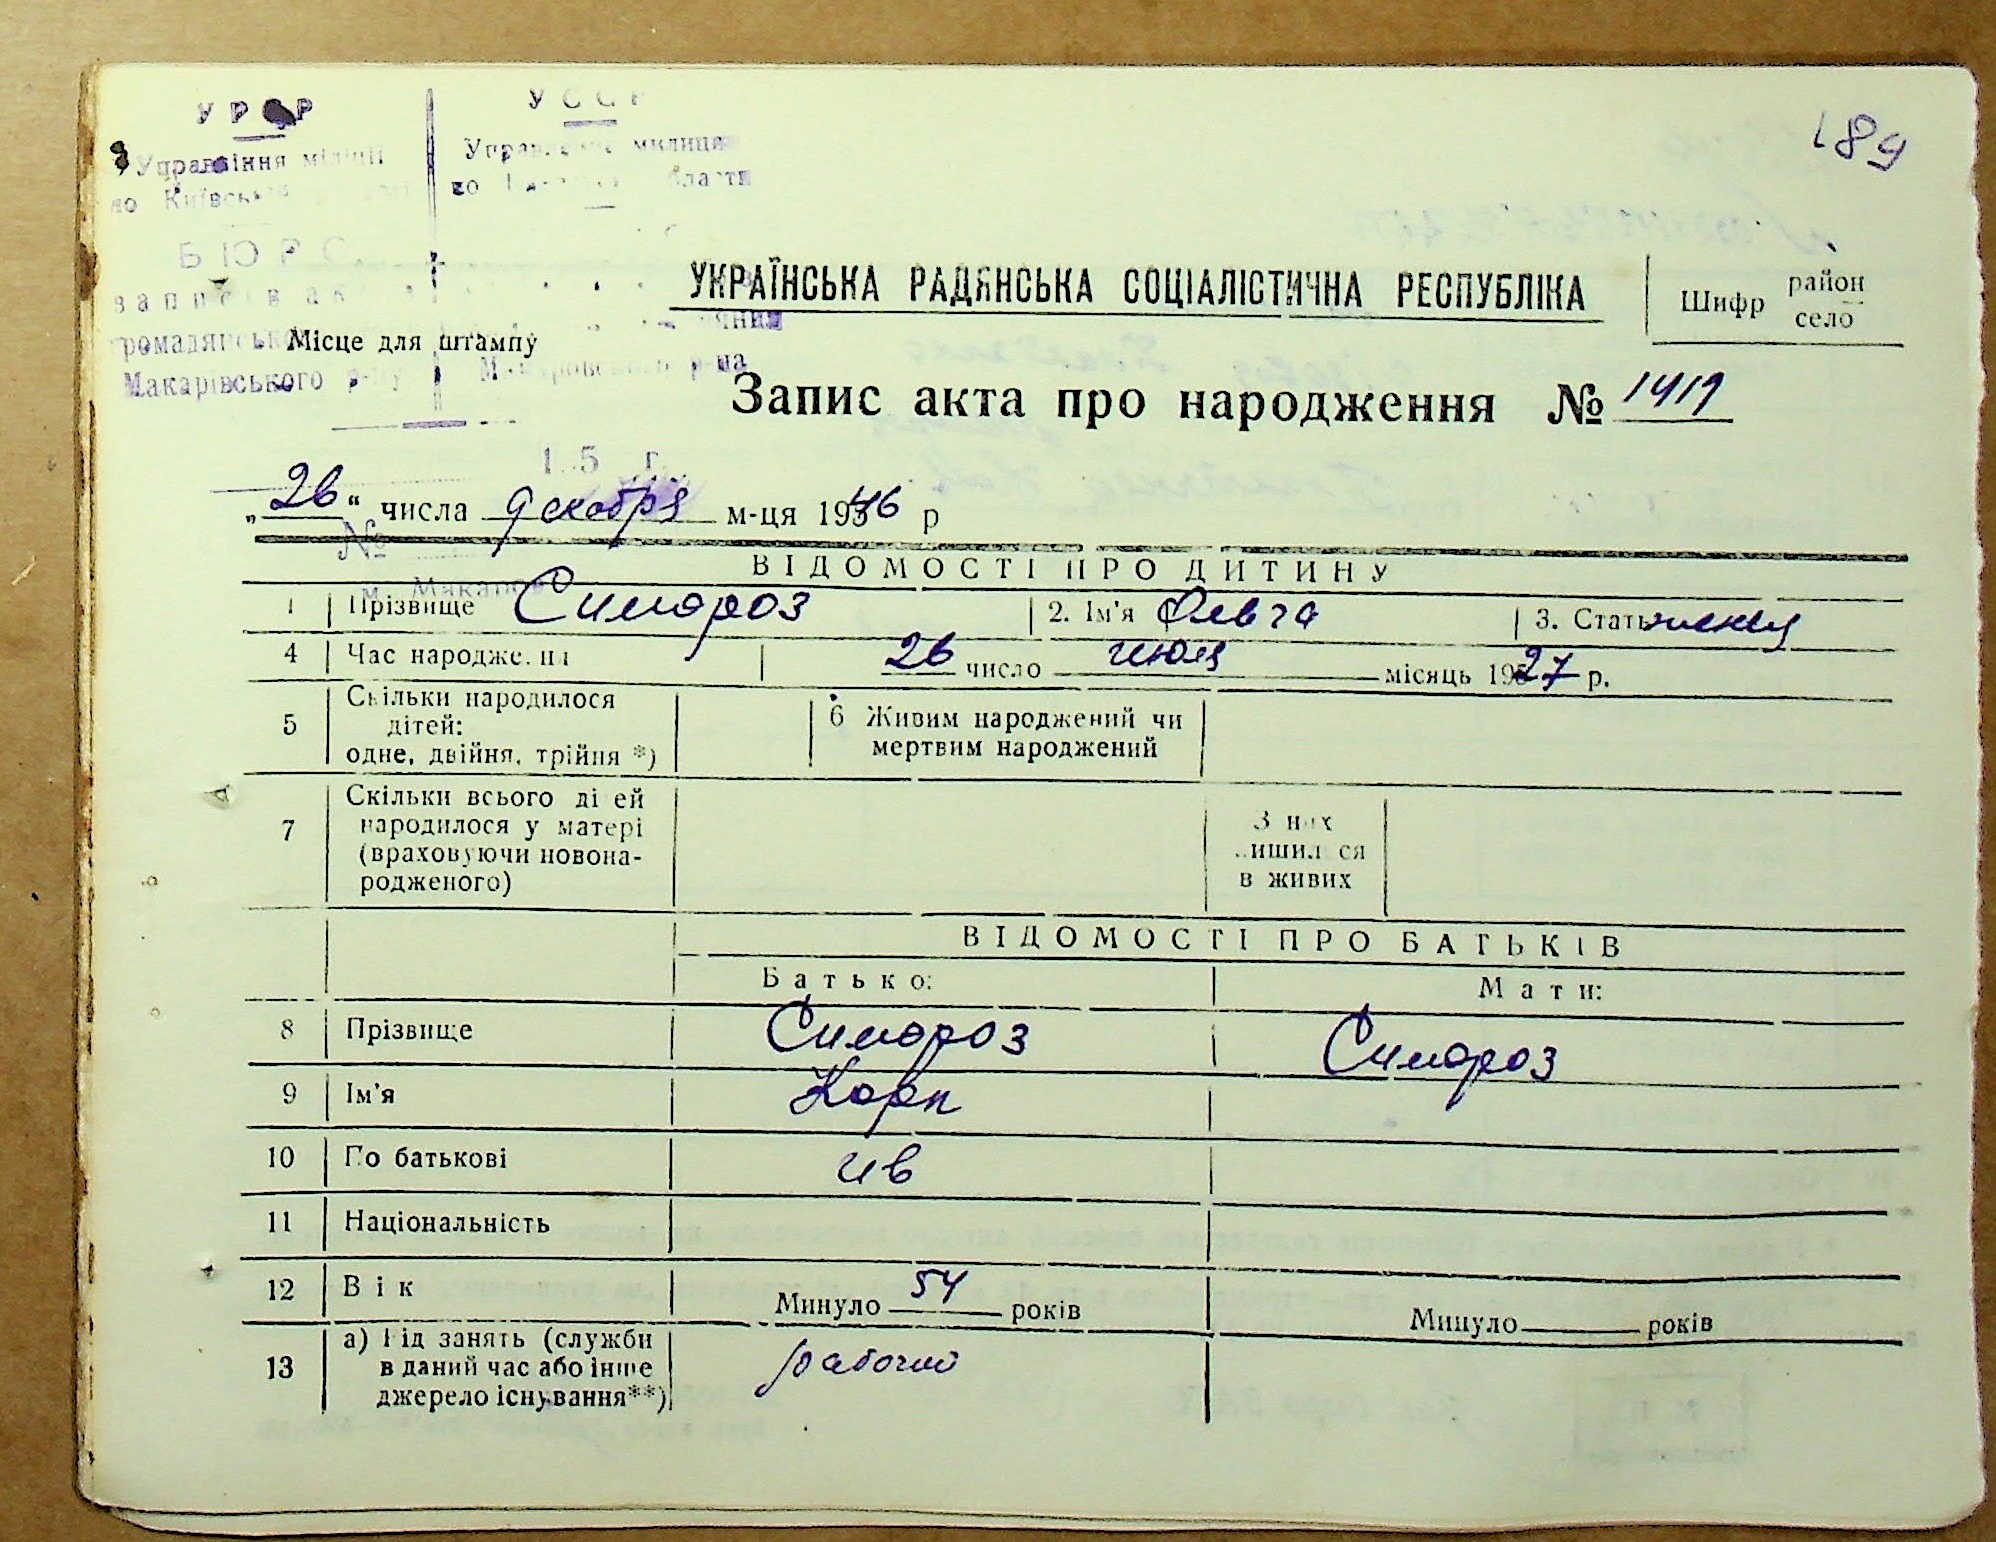 189
УРСР
УССР
Управління міліції
Управление милиции
по Київській
по области
БЮРО
записів
громадянсько
Місце для штампу
Макарівського р-ну
Макаровского р-на
УКРАЇНСЬКА РАДЯНСЬКА СОЦІАЛІСТИЧНА РЕСПУБЛІКА
Шифр район село
Запис акта про народження № 1419
195 г.
„26“ числа декабря м-ця 1946 р
№
м. Макарів
ВІДОМОСТІ ПРО ДИТИНУ
1 Прізвище Симороз 2. Ім'я Ольга 3. Стать женщ
4 Час народження 26 число июля місяць 1927 р.
5 Скільки народилося дітей: одне, двійня, трійня *)
6 Живим народжений чи мертвим народжений
7 Скільки всього дітей народилося у матері (враховуючи новонародженого)
З них лишилося в живих
ВІДОМОСТІ ПРО БАТЬКІВ
Батько: Мати:
8 Прізвище Симороз Симороз
9 Ім'я Карп
10 По батькові Ив
11 Національність
12 Вік Минуло 54 років Минуло років
13 а) Рід занять (служби в даний час або інше джерело існування**) рабочий